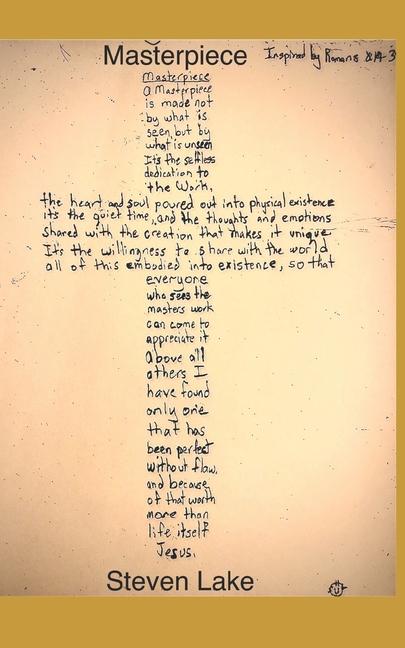 Masterpiece
Inspired by Romans 8:14-3
Masterpiece
a Masterpiece
is made not
by what is
seen, but by
what is unseen
It's the selfless
dedication to
the Work,
the heart and soul poured out into physical existence
it's the quiet time, and the thoughts and emotions
shared with the creation that makes it unique
It's the willingness to share with the world
all of this embodied into existence, so that
everyone
who sees the
masters work
can come to
appreciate it
above all
others I
have found
only one
that has
been perfect
without flaw,
and because
of that worth
more than
life itself
Jesus.
Steven Lake